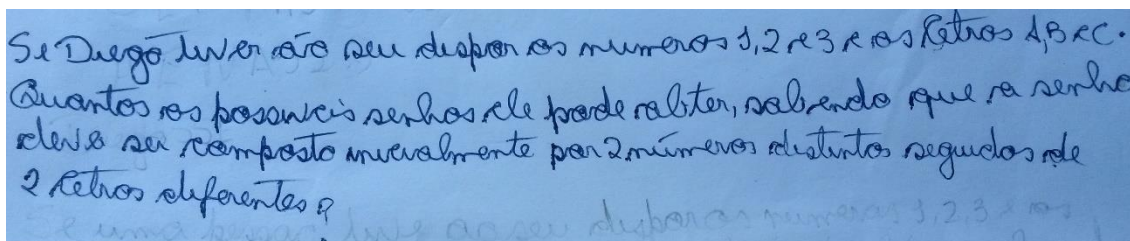 Se Diego tiver ão seu dispor os numeros 1,2 e 3 e as letras A,B e C.
Quantos as possiveis senhas ele pode obter, sabendo que a senha
deve ser composto inicialmente por 2 números distintos seguidos de
2 letras diferentes?